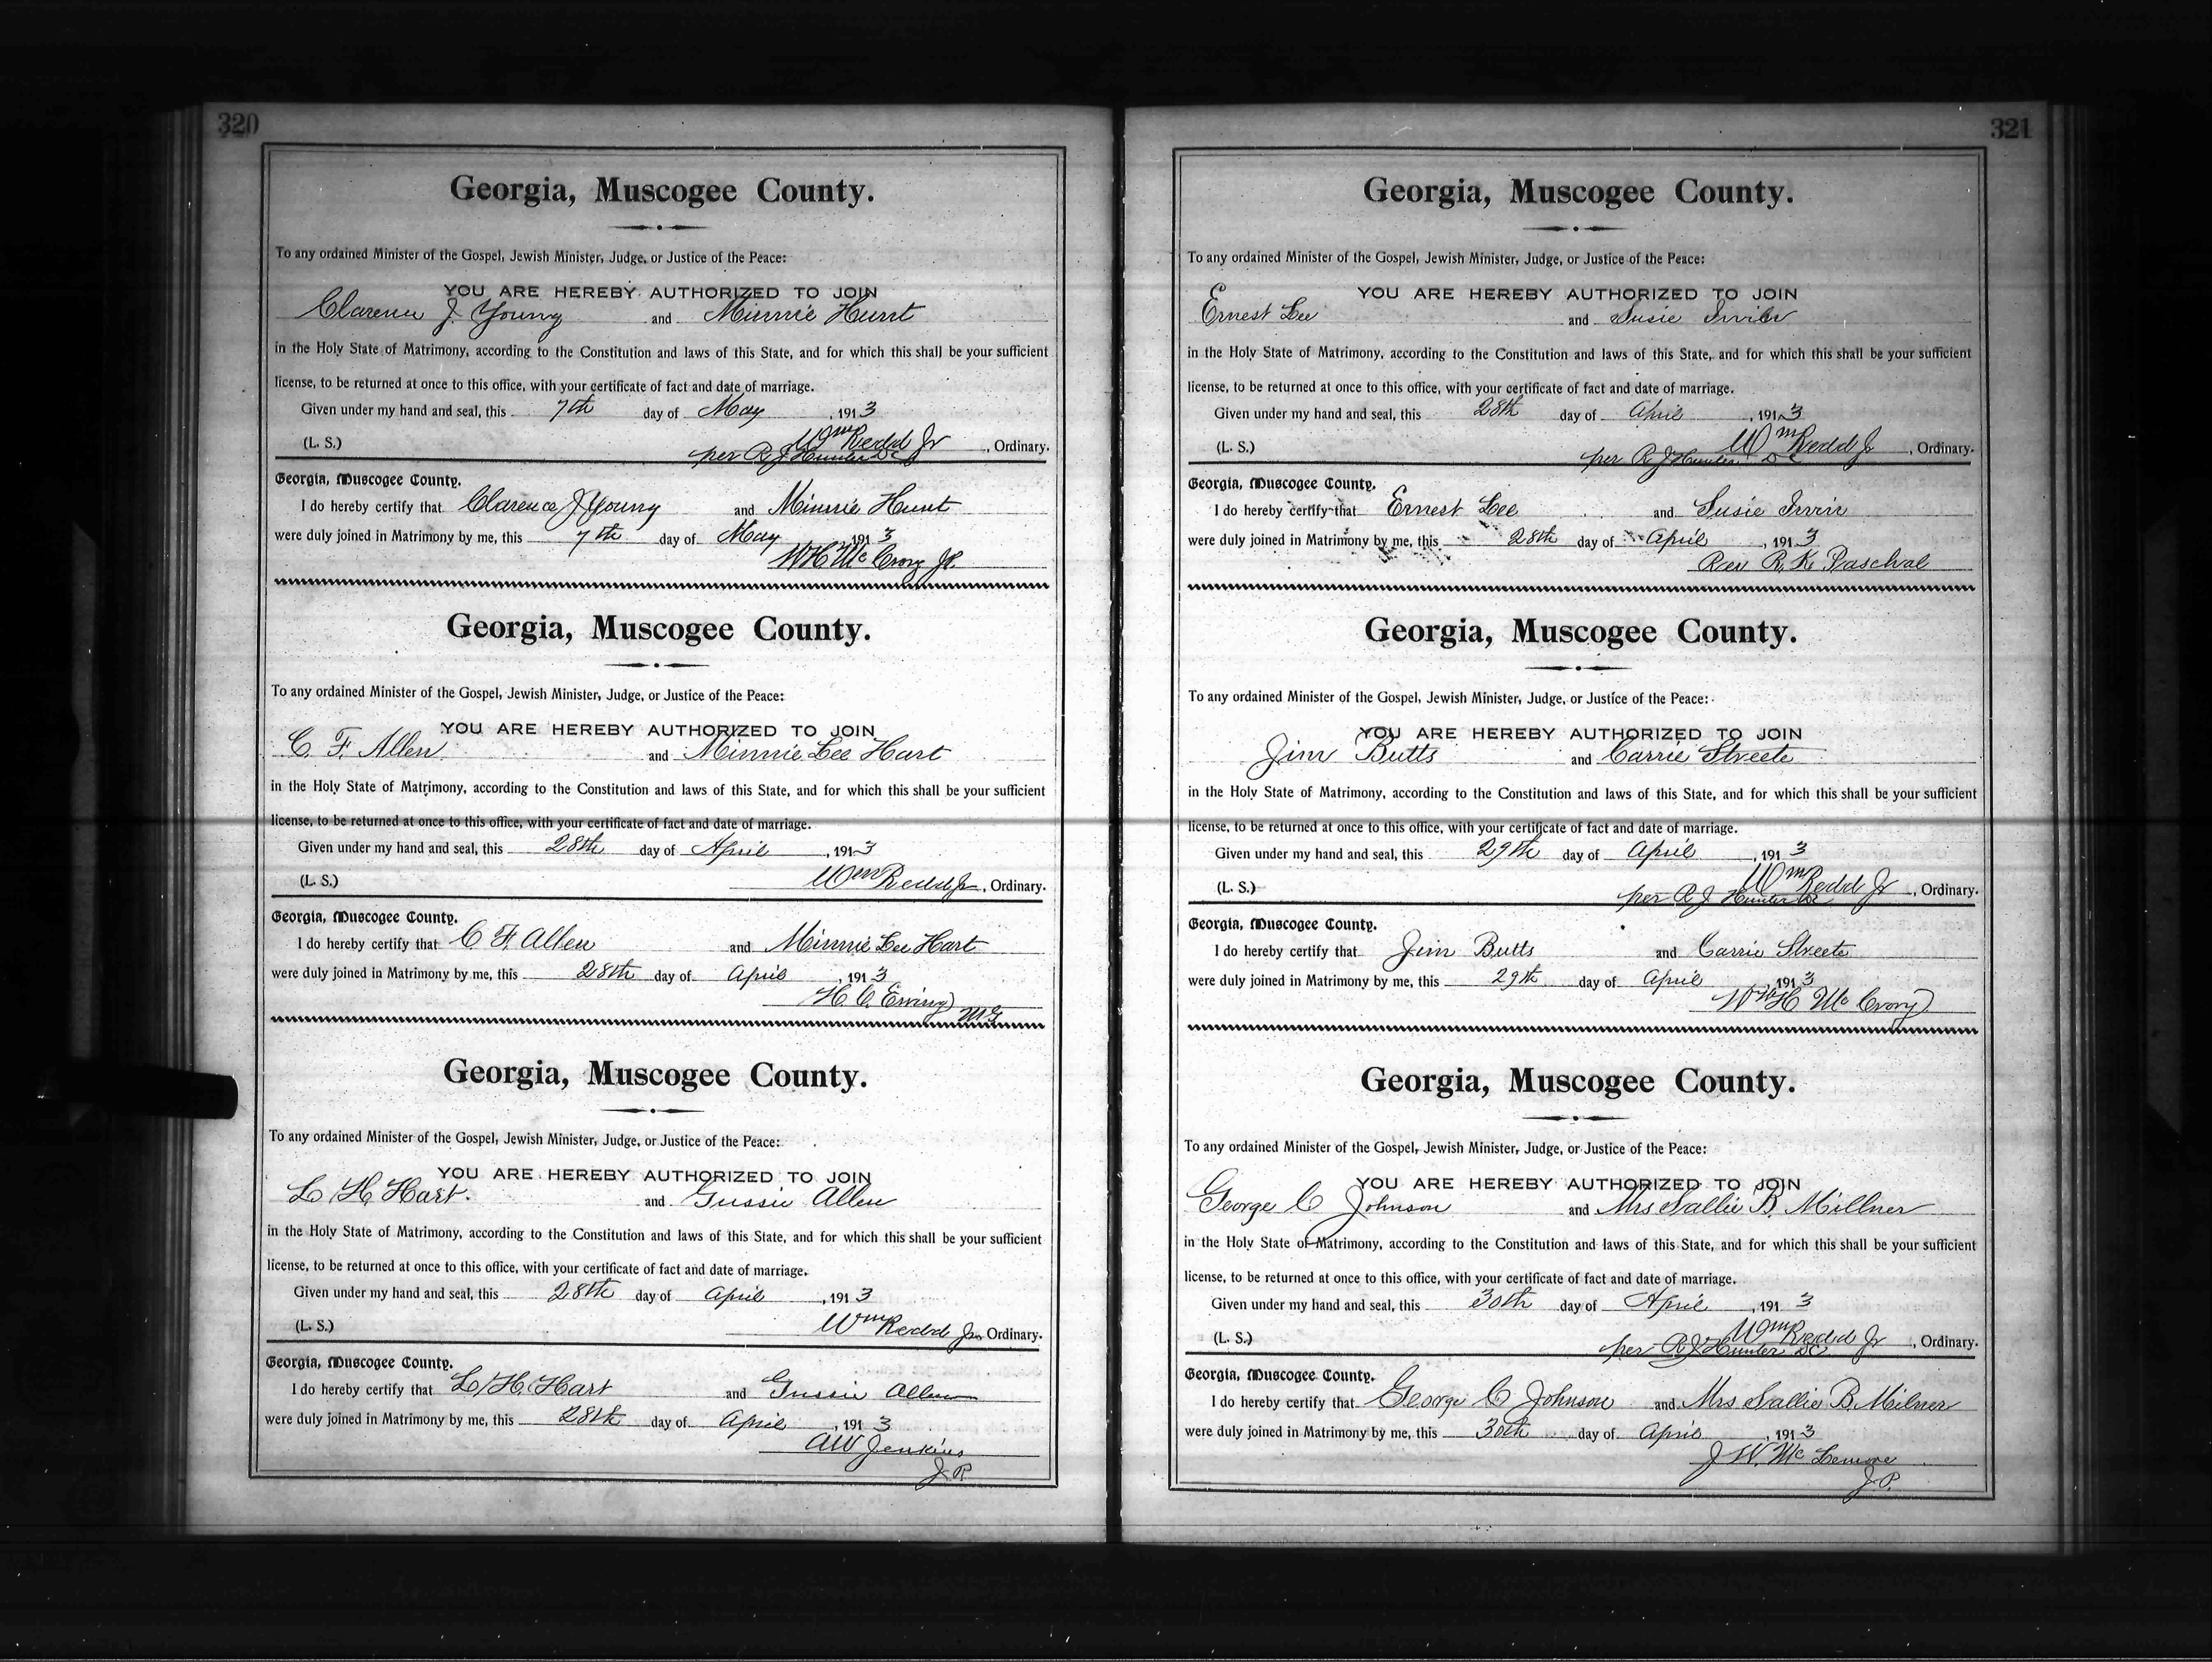 320
Georgia, Muscogee County.
To any ordained Minister of the Gospel, Jewish Minister, Judge, or Justice of the Peace:
YOU ARE HEREBY AUTHORIZED TO JOIN
Clarence J. Young and Minnie Hunt
in the Holy State of Matrimony, according to the Constitution and laws of this State, and for which this shall be your sufficient
license, to be returned at once to this office, with your certificate of fact and date of marriage.
Given under my hand and seal, this 7th day of May, 1913
(L. S.) Wm Redd Jr, Ordinary.
per R J Hunter DC
Georgia, Muscogee County.
I do hereby certify that Clarence J Young and Minnie Hunt
were duly joined in Matrimony by me, this 7th day of May, 1913
WH McCrory JP.
Georgia, Muscogee County.
To any ordained Minister of the Gospel, Jewish Minister, Judge, or Justice of the Peace:
YOU ARE HEREBY AUTHORIZED TO JOIN
C. F. Allen and Minnie Lee Hart
in the Holy State of Matrimony, according to the Constitution and laws of this State, and for which this shall be your sufficient
license, to be returned at once to this office, with your certificate of fact and date of marriage.
Given under my hand and seal, this 28th day of April, 1913
(L. S.) Wm Redd Jr, Ordinary.
Georgia, Muscogee County.
I do hereby certify that C F. Allen and Minnie Lee Hart
were duly joined in Matrimony by me, this 28th day of April, 1913
H. C. Ewing
MG
Georgia, Muscogee County.
To any ordained Minister of the Gospel, Jewish Minister, Judge, or Justice of the Peace:
YOU ARE HEREBY AUTHORIZED TO JOIN
L H Hart. and Gussie Allen
in the Holy State of Matrimony, according to the Constitution and laws of this State, and for which this shall be your sufficient
license, to be returned at once to this office, with your certificate of fact and date of marriage.
Given under my hand and seal, this 28th day of April, 1913
(L. S.) Wm Redd Jr, Ordinary.
Georgia, Muscogee County.
I do hereby certify that L H Hart and Gussie Allen
were duly joined in Matrimony by me, this 28th day of April, 1913
AW Jenkins
J.P.
321
Georgia, Muscogee County.
To any ordained Minister of the Gospel, Jewish Minister, Judge, or Justice of the Peace:
YOU ARE HEREBY AUTHORIZED TO JOIN
Ernest Lee and Susie Irvin
in the Holy State of Matrimony, according to the Constitution and laws of this State, and for which this shall be your sufficient
license, to be returned at once to this office, with your certificate of fact and date of marriage.
Given under my hand and seal, this 28th day of April, 1913
(L. S.) Wm Redd Jr, Ordinary.
per R J Hunter DC
Georgia, Muscogee County.
I do hereby certify that Ernest Lee and Susie Irvin
were duly joined in Matrimony by me, this 28th day of April, 1913
Rev R. K. Paschal
Georgia, Muscogee County.
To any ordained Minister of the Gospel, Jewish Minister, Judge, or Justice of the Peace:
YOU ARE HEREBY AUTHORIZED TO JOIN
Jim Butts and Carrie Streete
in the Holy State of Matrimony, according to the Constitution and laws of this State, and for which this shall be your sufficient
license, to be returned at once to this office, with your certificate of fact and date of marriage.
Given under my hand and seal, this 29th day of April, 1913
(L. S.) Wm Redd Jr, Ordinary.
per R J Hunter DC
Georgia, Muscogee County.
I do hereby certify that Jim Butts and Carrie Streete
were duly joined in Matrimony by me, this 29th day of April, 1913
Wm H McCrory
Georgia, Muscogee County.
To any ordained Minister of the Gospel, Jewish Minister, Judge, or Justice of the Peace:
YOU ARE HEREBY AUTHORIZED TO JOIN
George C Johnson and Mrs Sallie B. Millner
in the Holy State of Matrimony, according to the Constitution and laws of this State, and for which this shall be your sufficient
license, to be returned at once to this office, with your certificate of fact and date of marriage.
Given under my hand and seal, this 30th day of April, 1913
(L. S.) Wm Redd Jr, Ordinary.
per R J Hunter DC
Georgia, Muscogee County.
I do hereby certify that George C Johnson and Mrs Sallie B. Milner
were duly joined in Matrimony by me, this 30th day of April, 1913
J W. McLemore
J.P.